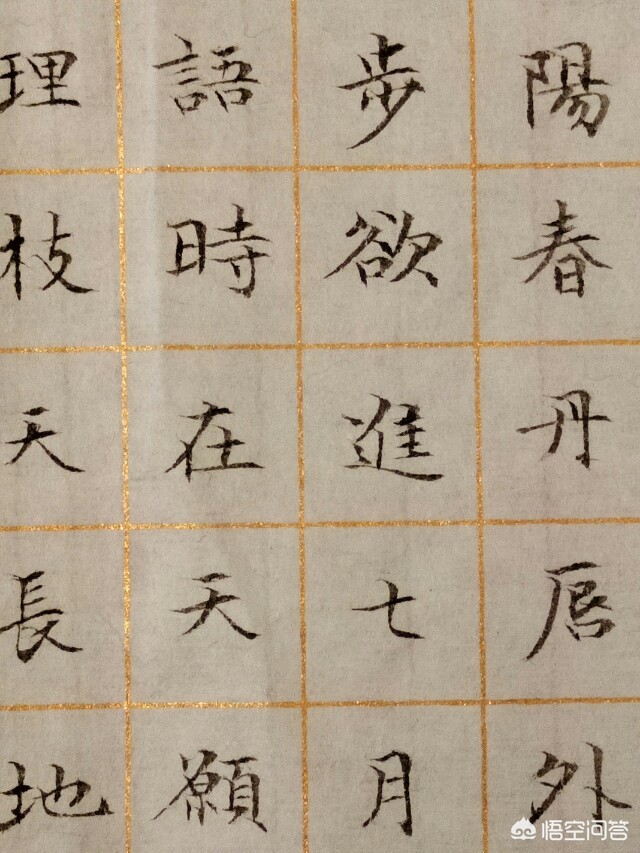 陽春丹唇外
步欲進七月
語時在天願
理枝天長地
悟空问答